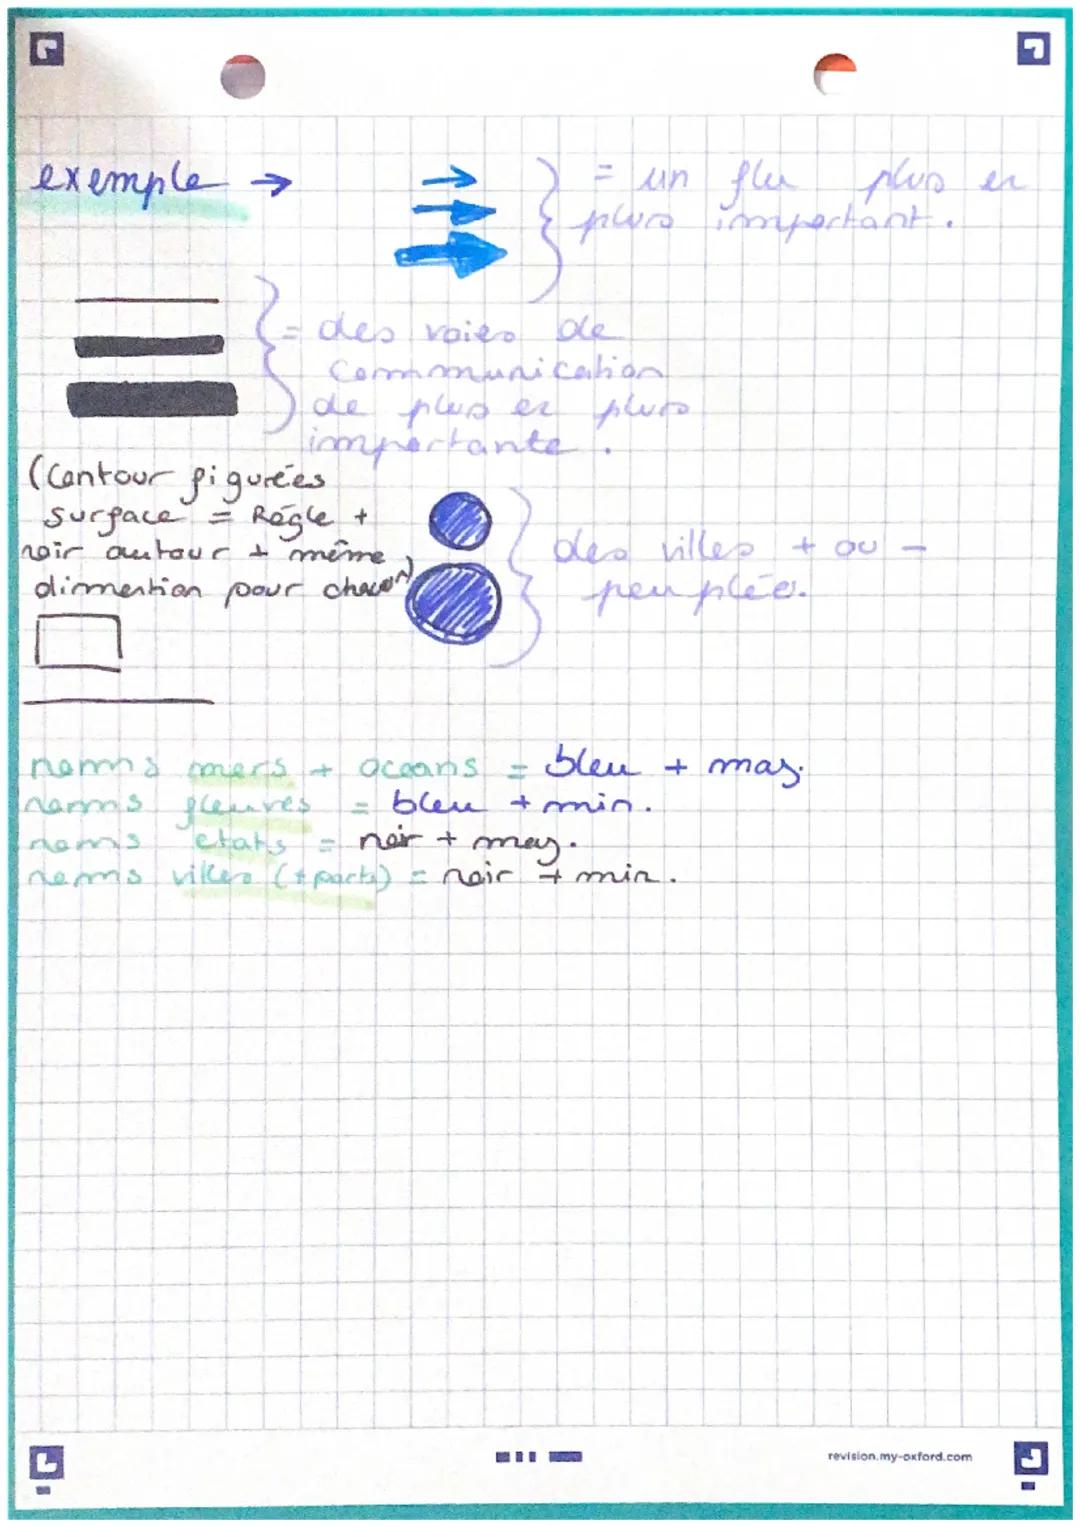 exemple →
= un flu plus en
plus important.
= des voies de
communication
de plus en plus
importante.
(Contour figurées
surface = Régle +
noir autour + même
dimention pour chacun)
des villes + ou -
peuplée.
noms mers + oceans = bleu + maj.
noms fleuves = bleu + min.
noms etats = noir + maj.
noms villes (+ ports) = noir + min.
revision.my-oxford.com